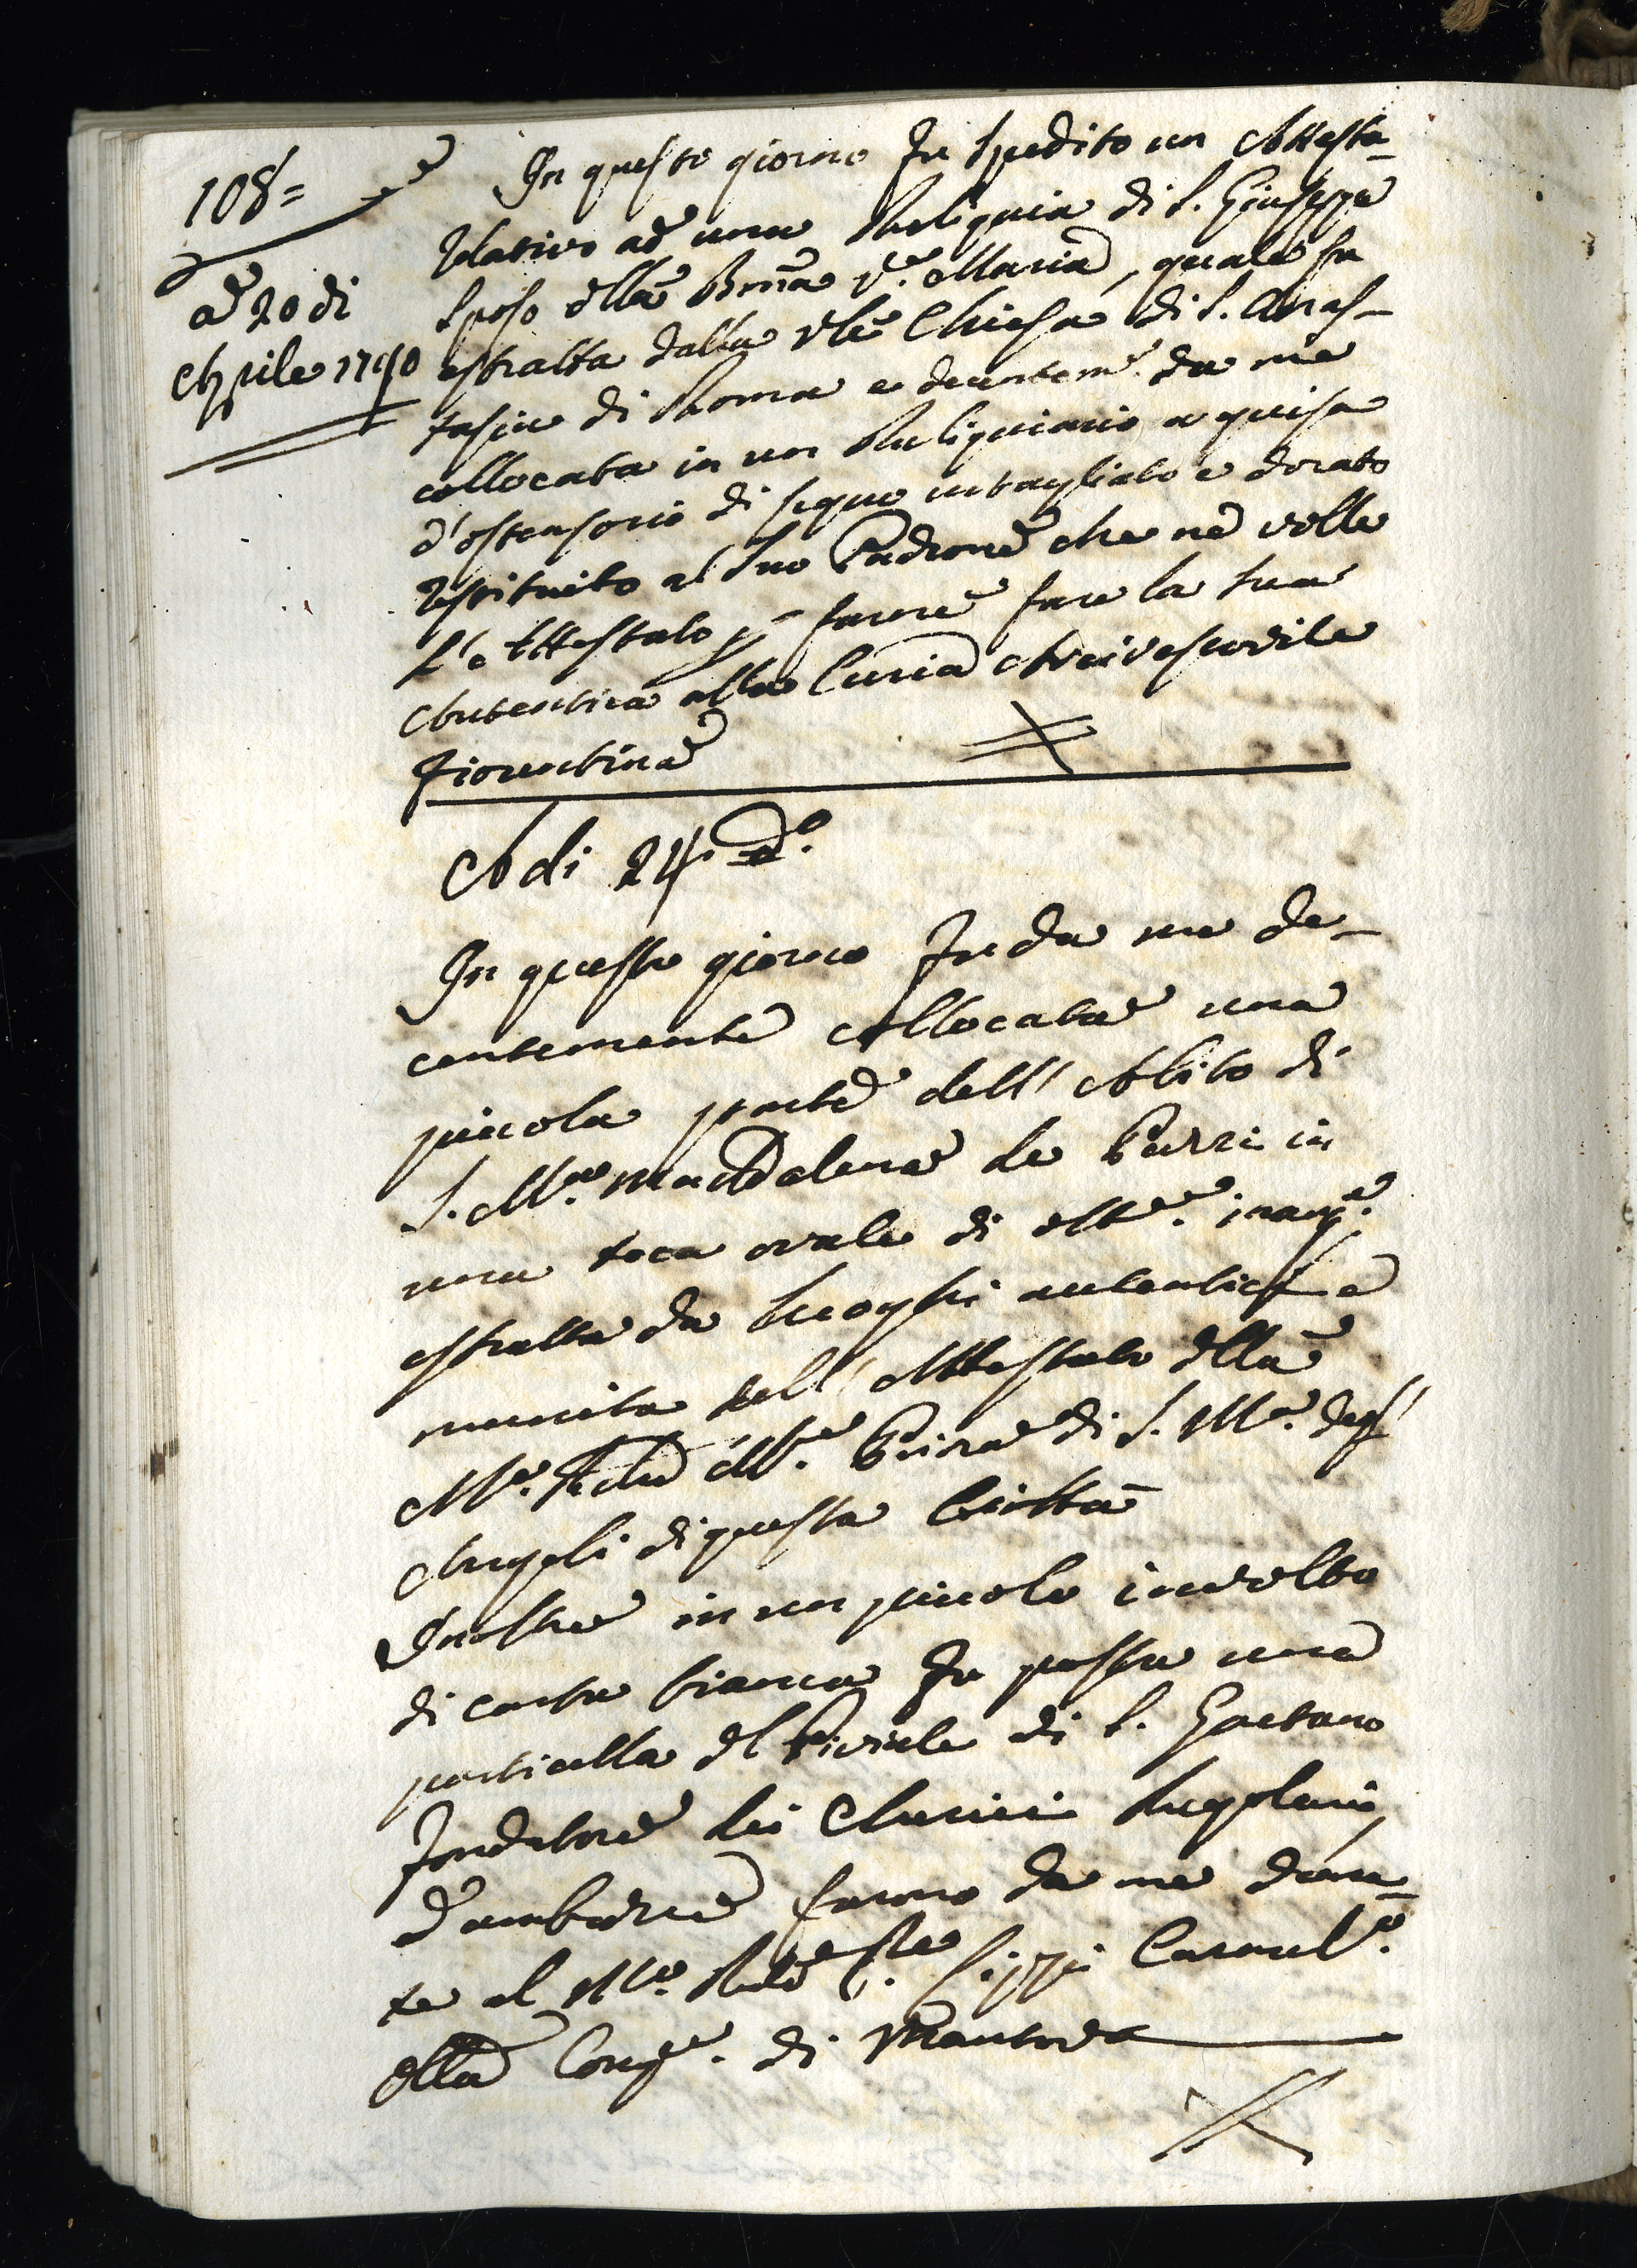 108=
a 20 di
Aprile 1790
In questo giorno fu spedito un Attesta-
relativo ad una Reliquia di S. Giuseppe
Sposo della B.ma V.e Maria, quale fu
estratta dalla Ven.le Chiesa di S. Anas-
tasia di Roma e decentem.e da me
collocata in un Reliquiario a guisa
d'ostensorio di legno intagliato e dorato
restituito al Suo Padrone che ne volle
l'Attestato p farne fare la sua
Autentica alla Curia Arcivescovile
Fiorentina
A di 24 d.o
In questo giorno fu da me de-
centemente collocata una
piccola parte dell' Abito di
S. M.a Maddalena de Pazzi in
una teca ovale di ott.e inarg.
estratta da Luoghi autentici e
munita dell' Attestato della
M.o Rda M.e Priora di S. M.a degl'
Angeli di questa Città
Inoltre in un piccolo involto
di carta bianca fu posta una
particella del Piviale di S. Gaetano
fondatore dei Cherici Regolari,
d'ambidue furono da me dona-
te al M.o Rdo P.re Lippi Carmel.o
della Cong.e di Mantova